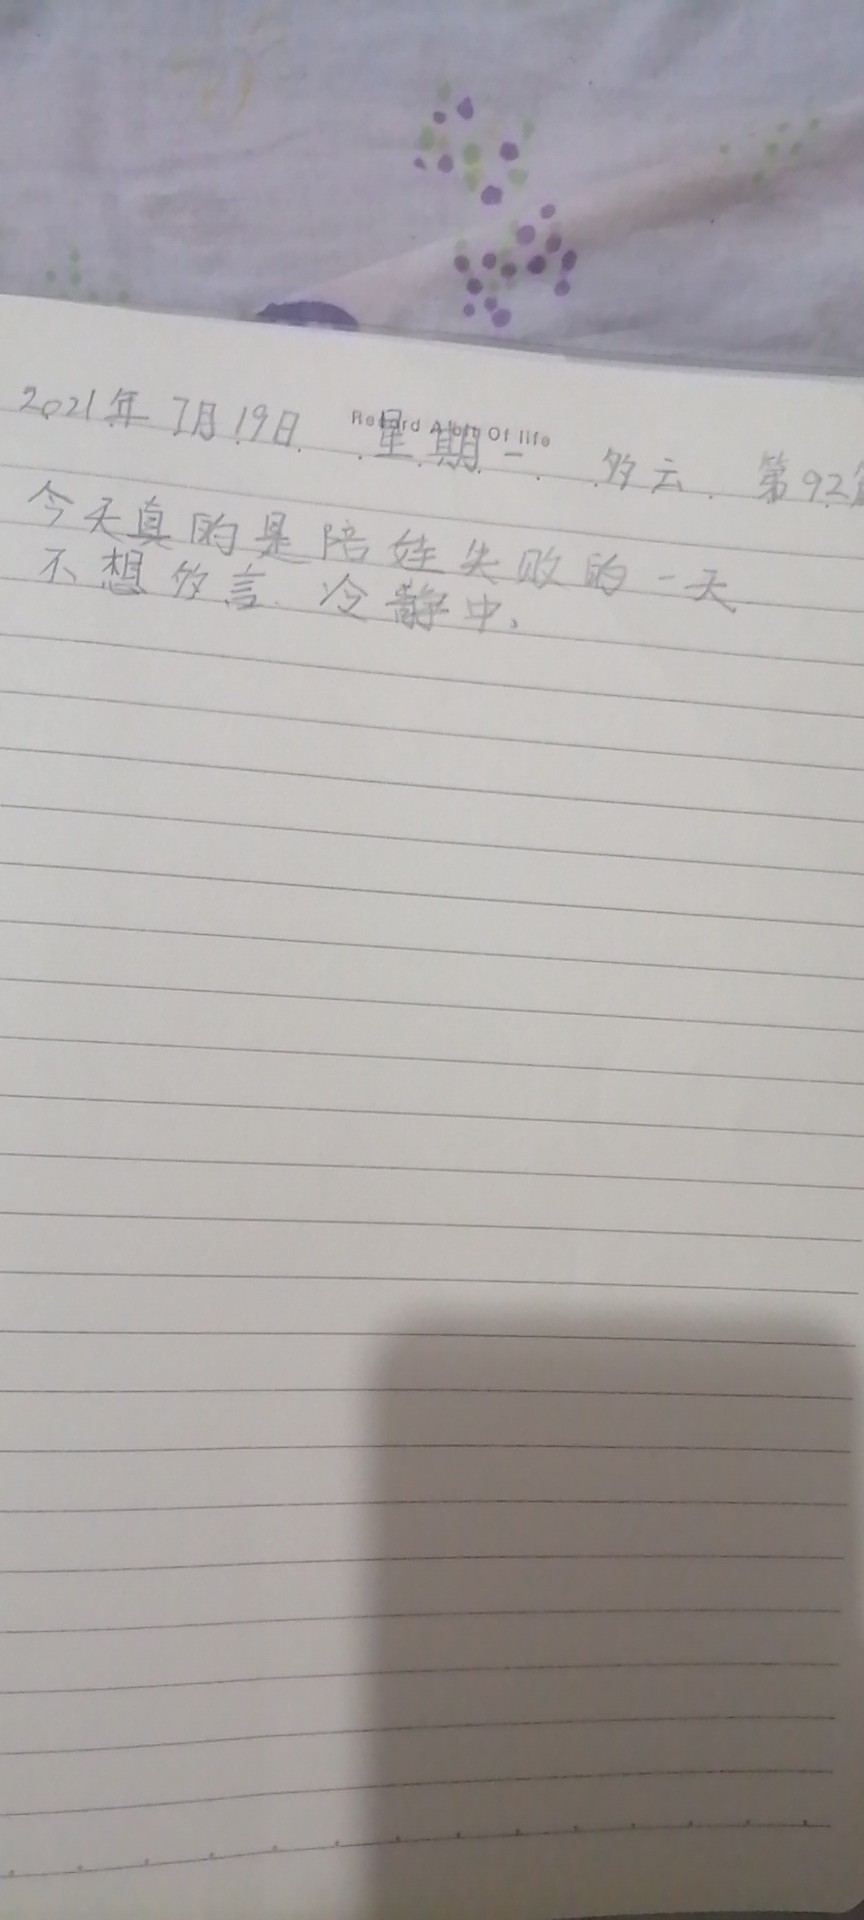 Record A lots Of life
2021年7月19日 星期一. 多云. 第92篇
今天真的是陪娃失败的一天
不想多言.冷静中.